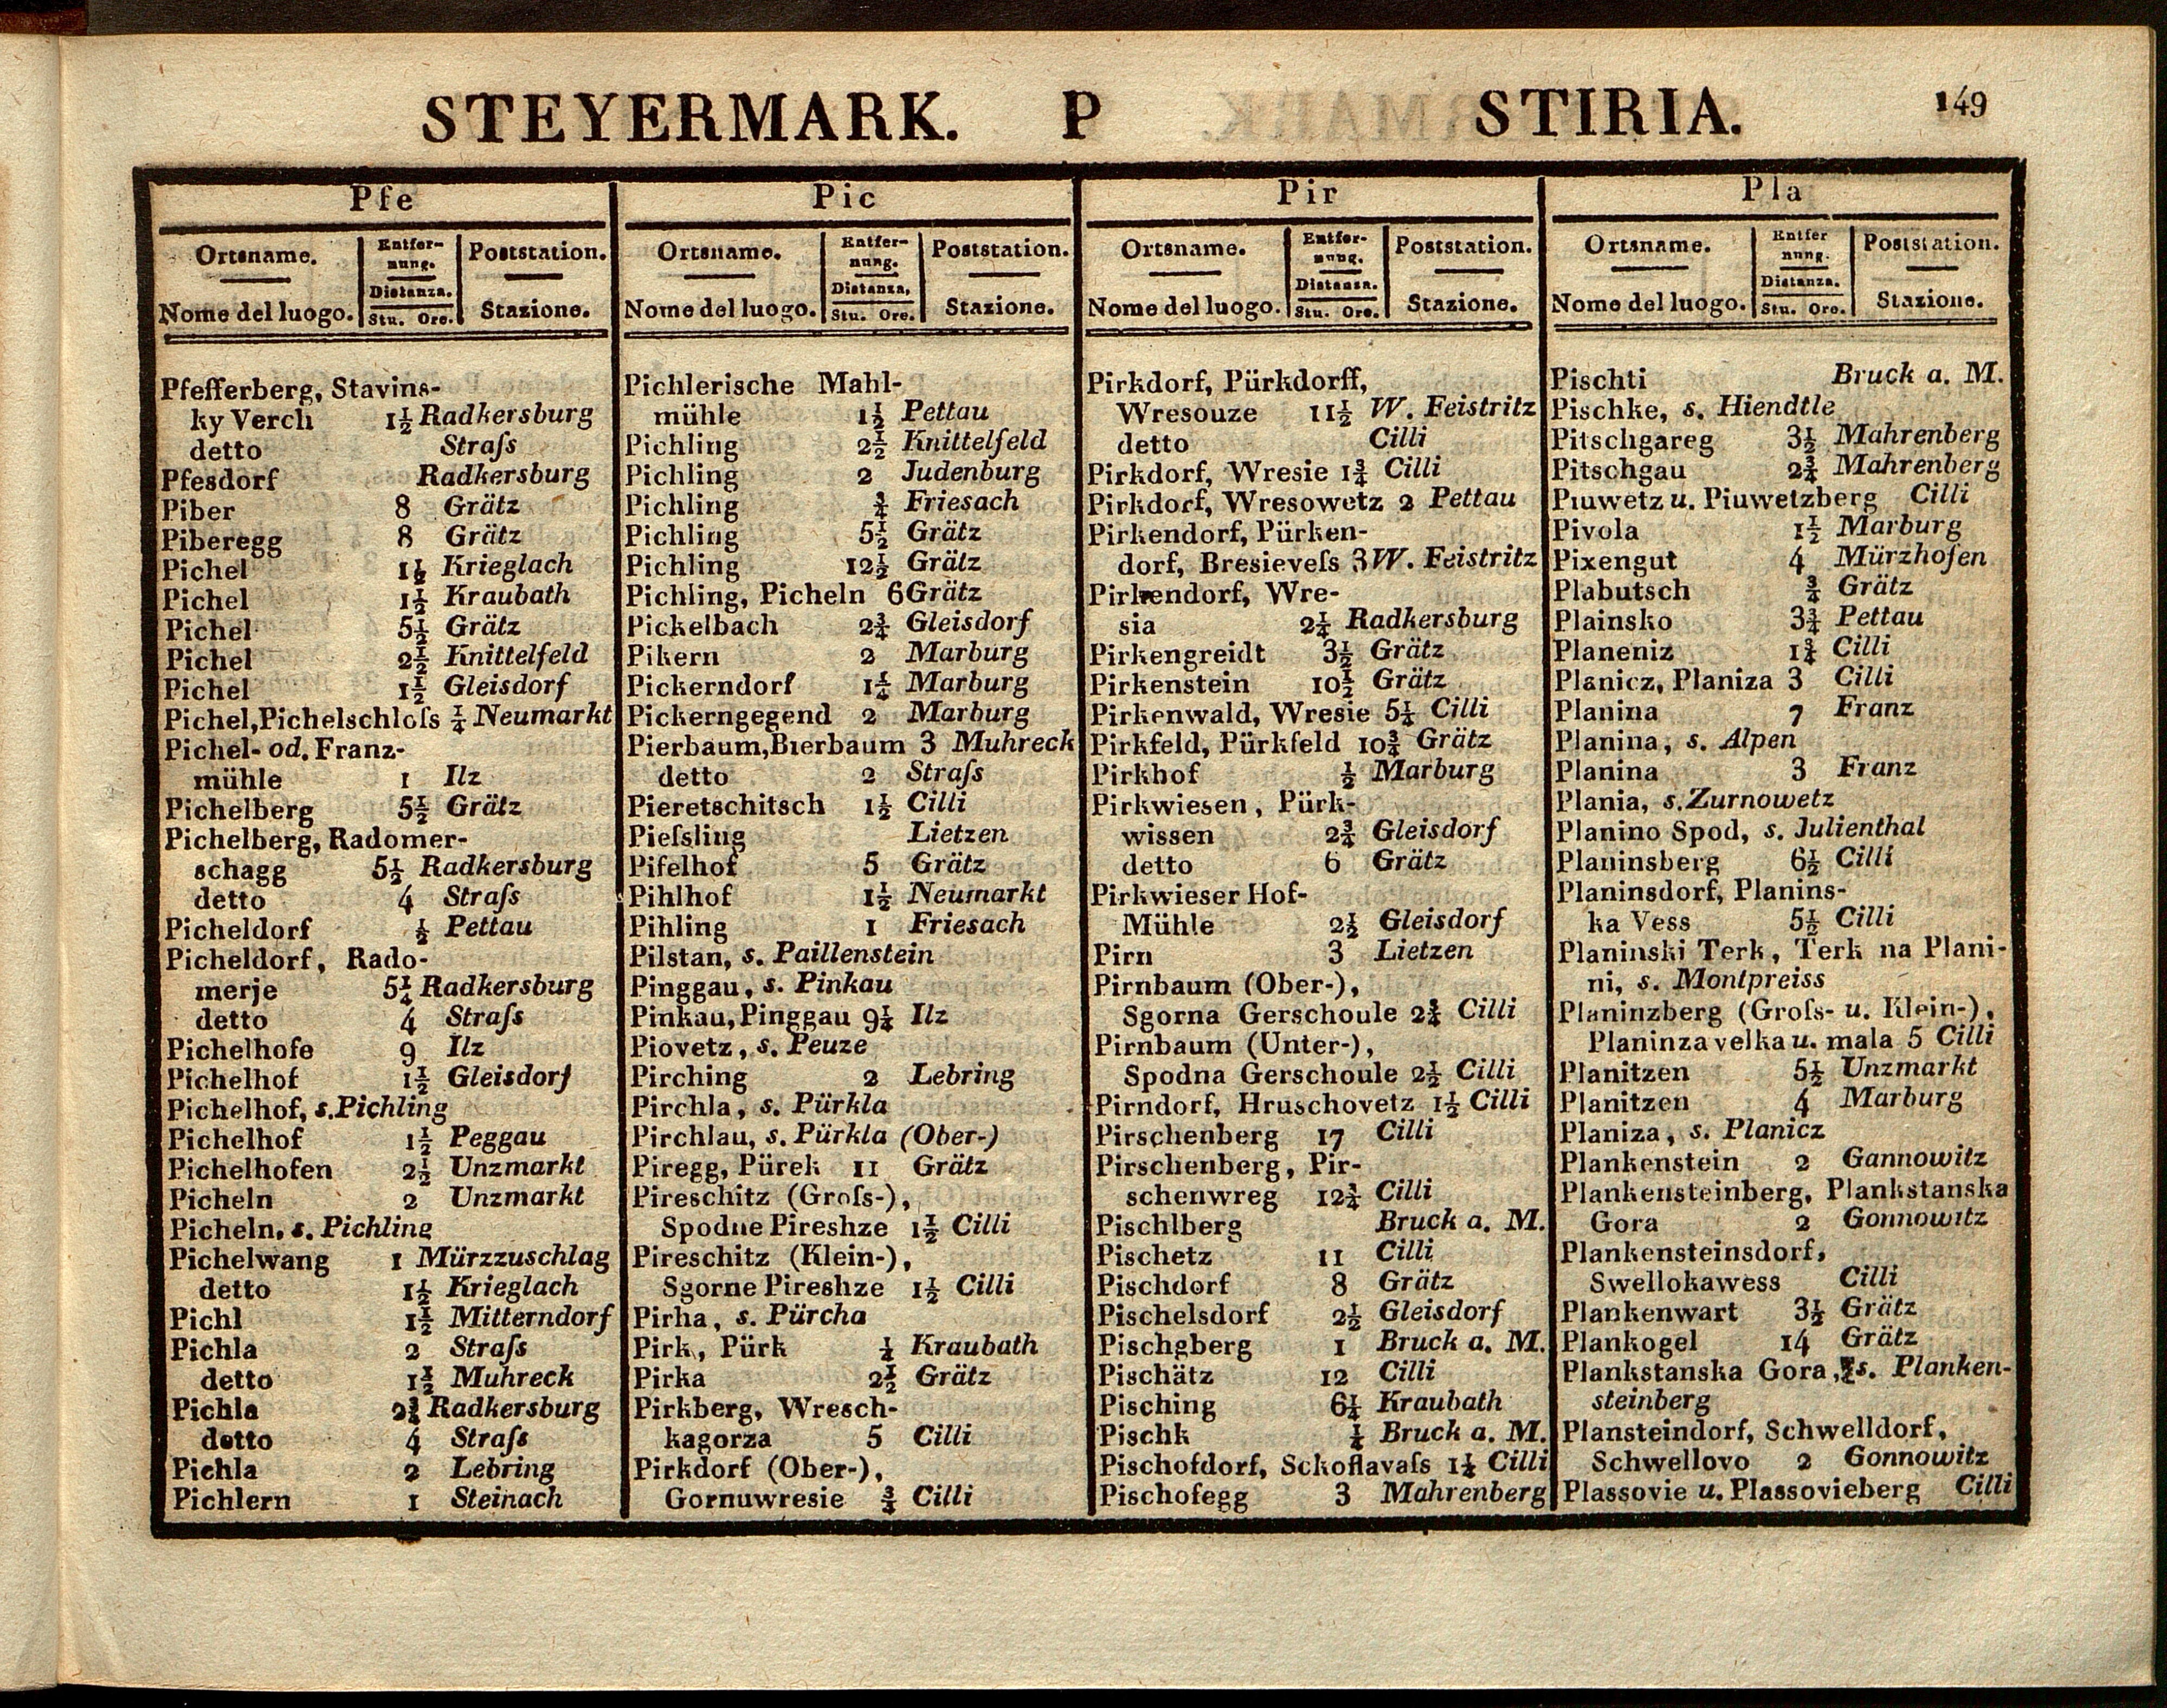 STEYERMARK. P STIRIA. 149
Pfe
Ortsname. Entfer- Poststation.
nung.
Distanza.
Nome del luogo. Stu. Ore. Stazione.
Pfefferberg, Stavins-
ky Verch 1½ Radkersburg
detto Straſs
Pfesdorf Radkersburg
Piber 8 Grätz
Piberegg 8 Grätz
Pichel 1½ Krieglach
Pichel 1½ Kraubath
Pichel 5½ Grätz
Pichel 2½ Knittelfeld
Pichel 1½ Gleisdorf
Pichel, Pichelschloſs ¼ Neumarkt
Pichel- od. Franz-
mühle 1 Ilz
Pichelberg 5½ Grätz
Pichelberg, Radomer-
schagg 5½ Radkersburg
detto 4 Straſs
Picheldorf ½ Pettau
Picheldorf, Rado-
merje 5¼ Radkersburg
detto 4 Straſs
Pichelhofe 9 Ilz
Pichelhof 1½ Gleisdorf
Pichelhof, s. Pichling
Pichelhof 1½ Peggau
Pichelhofen 2½ Unzmarkt
Picheln 2 Unzmarkt
Picheln, s. Pichling
Pichelwang 1 Mürzzuschlag
detto 1½ Krieglach
Pichl 1½ Mitterndorf
Pichla 2 Straſs
detto 1½ Muhreck
Pichla 2¾ Radkersburg
detto 4 Straſs
Pichla 2 Lebring
Pichlern 1 Steinach
Pic
Ortsname. Entfer- Poststation.
nung.
Distanza,
Nome del luogo. Stu. Ore. Stazione.
Pichlerische Mahl-
mühle 1½ Pettau
Pichling 2½ Knittelfeld
Pichling 2 Judenburg
Pichling ¾ Friesach
Pichling 5½ Grätz
Pichling 12½ Grätz
Pichling, Picheln 6 Grätz
Pickelbach 2¾ Gleisdorf
Pikern 2 Marburg
Pickerndorf 1¼ Marburg
Pickerngegend 2 Marburg
Pierbaum, Bierbaum 3 Muhreck
detto 2 Straſs
Pieretschitsch 1½ Cilli
Pieſsling Lietzen
Pifelhof 5 Grätz
Pihlhof 1½ Neumarkt
Pihling 1 Friesach
Pilstan, s. Paillenstein
Pinggau, s. Pinkau
Pinkau, Pinggau 9¼ Ilz
Piovetz, s. Peuze
Pirching 2 Lebring
Pirchla, s. Pürkla
Pirchlau, s. Pürkla (Ober-)
Piregg, Pürek 11 Grätz
Pireschitz (Groſs-),
Spodne Pireshze 1½ Cilli
Pireschitz (Klein-),
Sgorne Pireshze 1½ Cilli
Pirha, s. Pürcha
Pirk, Pürk ¼ Kraubath
Pirka 2½ Grätz
Pirkberg, Wresch-
kagorza 5 Cilli
Pirkdorf (Ober-),
Gornuwresie ¾ Cilli
Pir
Ortsname. Entfer- Poststation.
nung.
Distanza.
Nome del luogo. Stu. Ore. Stazione.
Pirkdorf, Pürkdorff,
Wresouze 11½ W. Feistritz
detto Cilli
Pirkdorf, Wresie 1¾ Cilli
Pirkdorf, Wresowetz 2 Pettau
Pirkendorf, Pürken-
dorf, Bresieveſs 3 W. Feistritz
Pirkendorf, Wre-
sia 2¼ Radkersburg
Pirkengreidt 3½ Grätz
Pirkenstein 10½ Grätz
Pirkenwald, Wresie 5¼ Cilli
Pirkfeld, Pürkfeld 10¾ Grätz
Pirkhof ½ Marburg
Pirkwiesen, Pürk-
wissen 2¾ Gleisdorf
detto 6 Grätz
Pirkwieser Hof-
Mühle 2½ Gleisdorf
Pirn 3 Lietzen
Pirnbaum (Ober-),
Sgorna Gerschoule 2¾ Cilli
Pirnbaum (Unter-),
Spodna Gerschoule 2½ Cilli
Pirndorf, Hruschovetz 1½ Cilli
Pirschenberg 17 Cilli
Pirschenberg, Pir-
schenwreg 12¾ Cilli
Pischlberg Bruck a. M.
Pischetz 11 Cilli
Pischdorf 8 Grätz
Pischelsdorf 2½ Gleisdorf
Pischgberg 1 Bruck a. M.
Pischätz 12 Cilli
Pisching 6¼ Kraubath
Pischk ¼ Bruck a. M.
Pischofdorf, Schoflavaſs 1¼ Cilli
Pischofegg 3 Mahrenberg
Pla
Ortsname. Entfer Poststation.
nung.
Distanza.
Nome del luogo. Stu. Ore. Stazione.
Pischti Bruck a. M.
Pischke, s. Hiendtle
Pitschgareg 3½ Mahrenberg
Pitschgau 2¾ Mahrenberg
Piuwetz u. Piuwetzberg Cilli
Pivola 1½ Marburg
Pixengut 4 Mürzhofen
Plabutsch ¾ Grätz
Plainsko 3¾ Pettau
Planeniz 1¾ Cilli
Planicz, Planiza 3 Cilli
Planina 7 Franz
Planina, s. Alpen
Planina 3 Franz
Plania, s. Zurnowetz
Planino Spod, s. Julienthal
Planinsberg 6½ Cilli
Planinsdorf, Planins-
ka Vess 5½ Cilli
Planinski Terk, Terk na Plani-
ni, s. Montpreiss
Planinzberg (Groſs- u. Klein-),
Planinza velka u. mala 5 Cilli
Planitzen 5½ Unzmarkt
Planitzen 4 Marburg
Planiza, s. Planicz
Plankenstein 2 Gannowitz
Plankensteinberg, Plankstanska
Gora 2 Gonnowitz
Plankensteinsdorf,
Swellokawess Cilli
Plankenwart 3½ Grätz
Plankogel 14 Grätz
Plankstanska Gora, s. Planken-
steinberg
Plansteindorf, Schwelldorf,
Schwellovo 2 Gonnowitz
Plassovie u. Plassovieberg Cilli